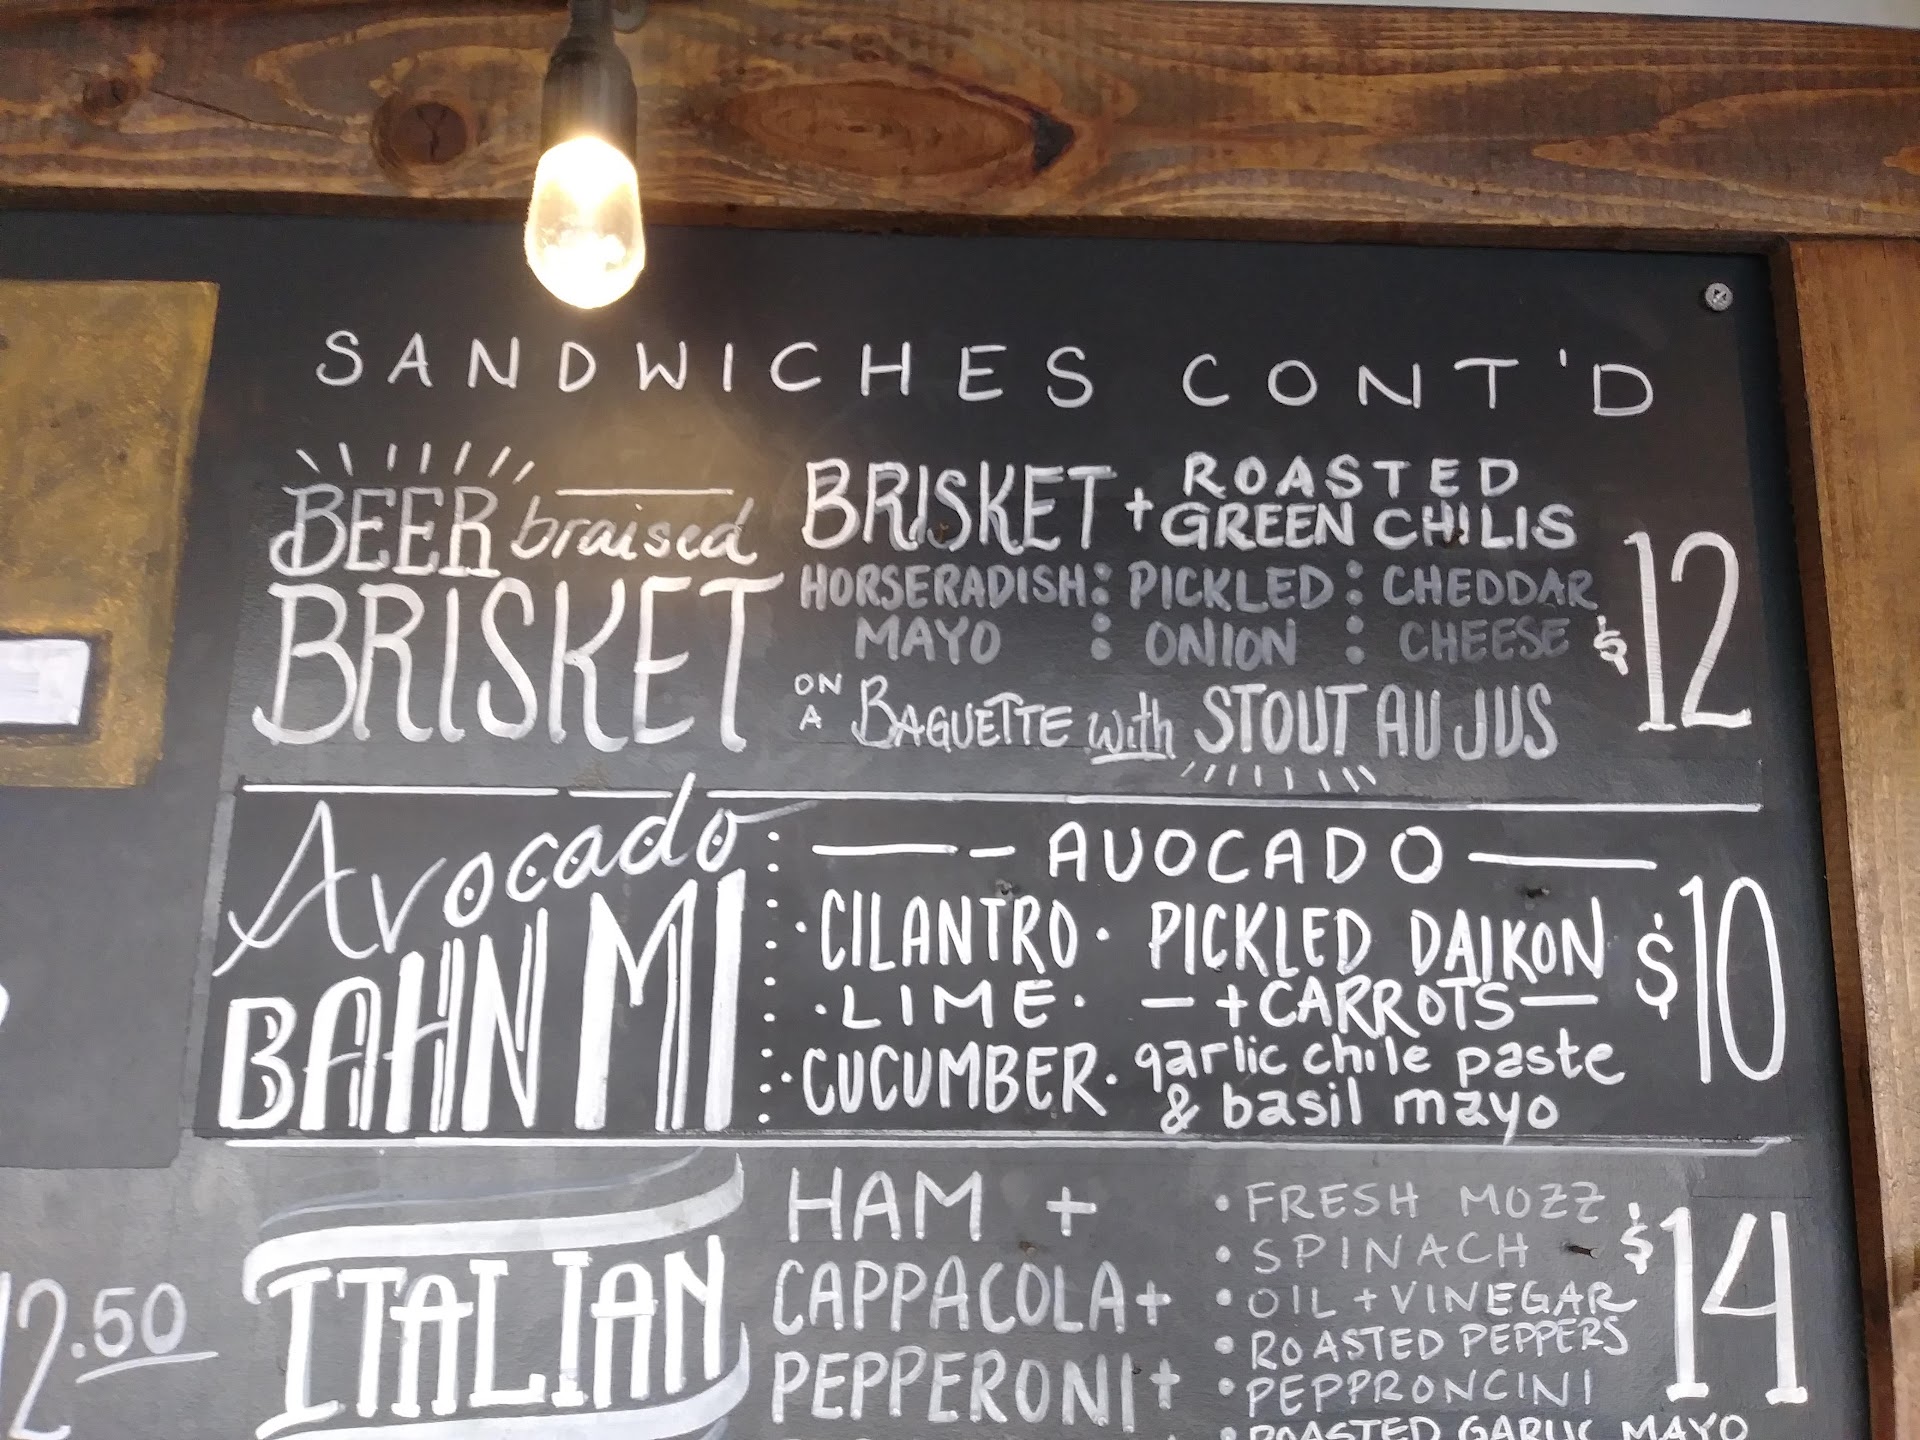 SANDWICHES CONT'D
BEER braised
BRISKET
BRISKET + ROASTED
GREEN CHILIS
HORSERADISH : PICKLED : CHEDDAR
MAYO : ONION : CHEESE
ON A BAGUETTE with STOUT AU JUS
$12
Avocado
BAHN MI
AVOCADO
· CILANTRO · PICKLED DAIKON
· LIME · + CARROTS
· CUCUMBER · garlic chile paste
& basil mayo
$10
ITALIAN
HAM +
CAPPACOLA +
PEPPERONI +
• FRESH MOZZ
• SPINACH
• OIL + VINEGAR
• ROASTED PEPPERS
• PEPPRONCINI
ROASTED GARLIC MAYO
$14
12.50